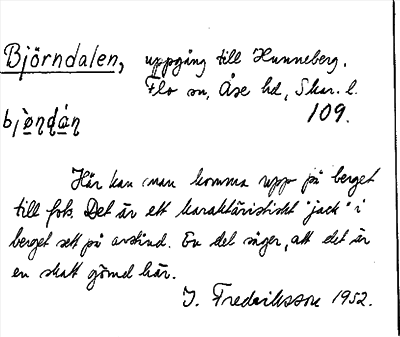 Björndalen, uppgång till Hunneberg.
Flo sn, Åse hd, Skar. l.
109.
bjø̀ɳɖáɳ
Här kan man komma upp på berget
till fots. Det är ett karaktäristiskt "jack" i
berget sett på avstånd. En del säger, att det är
en skatt gömd här.
J. Fredriksson 1952.